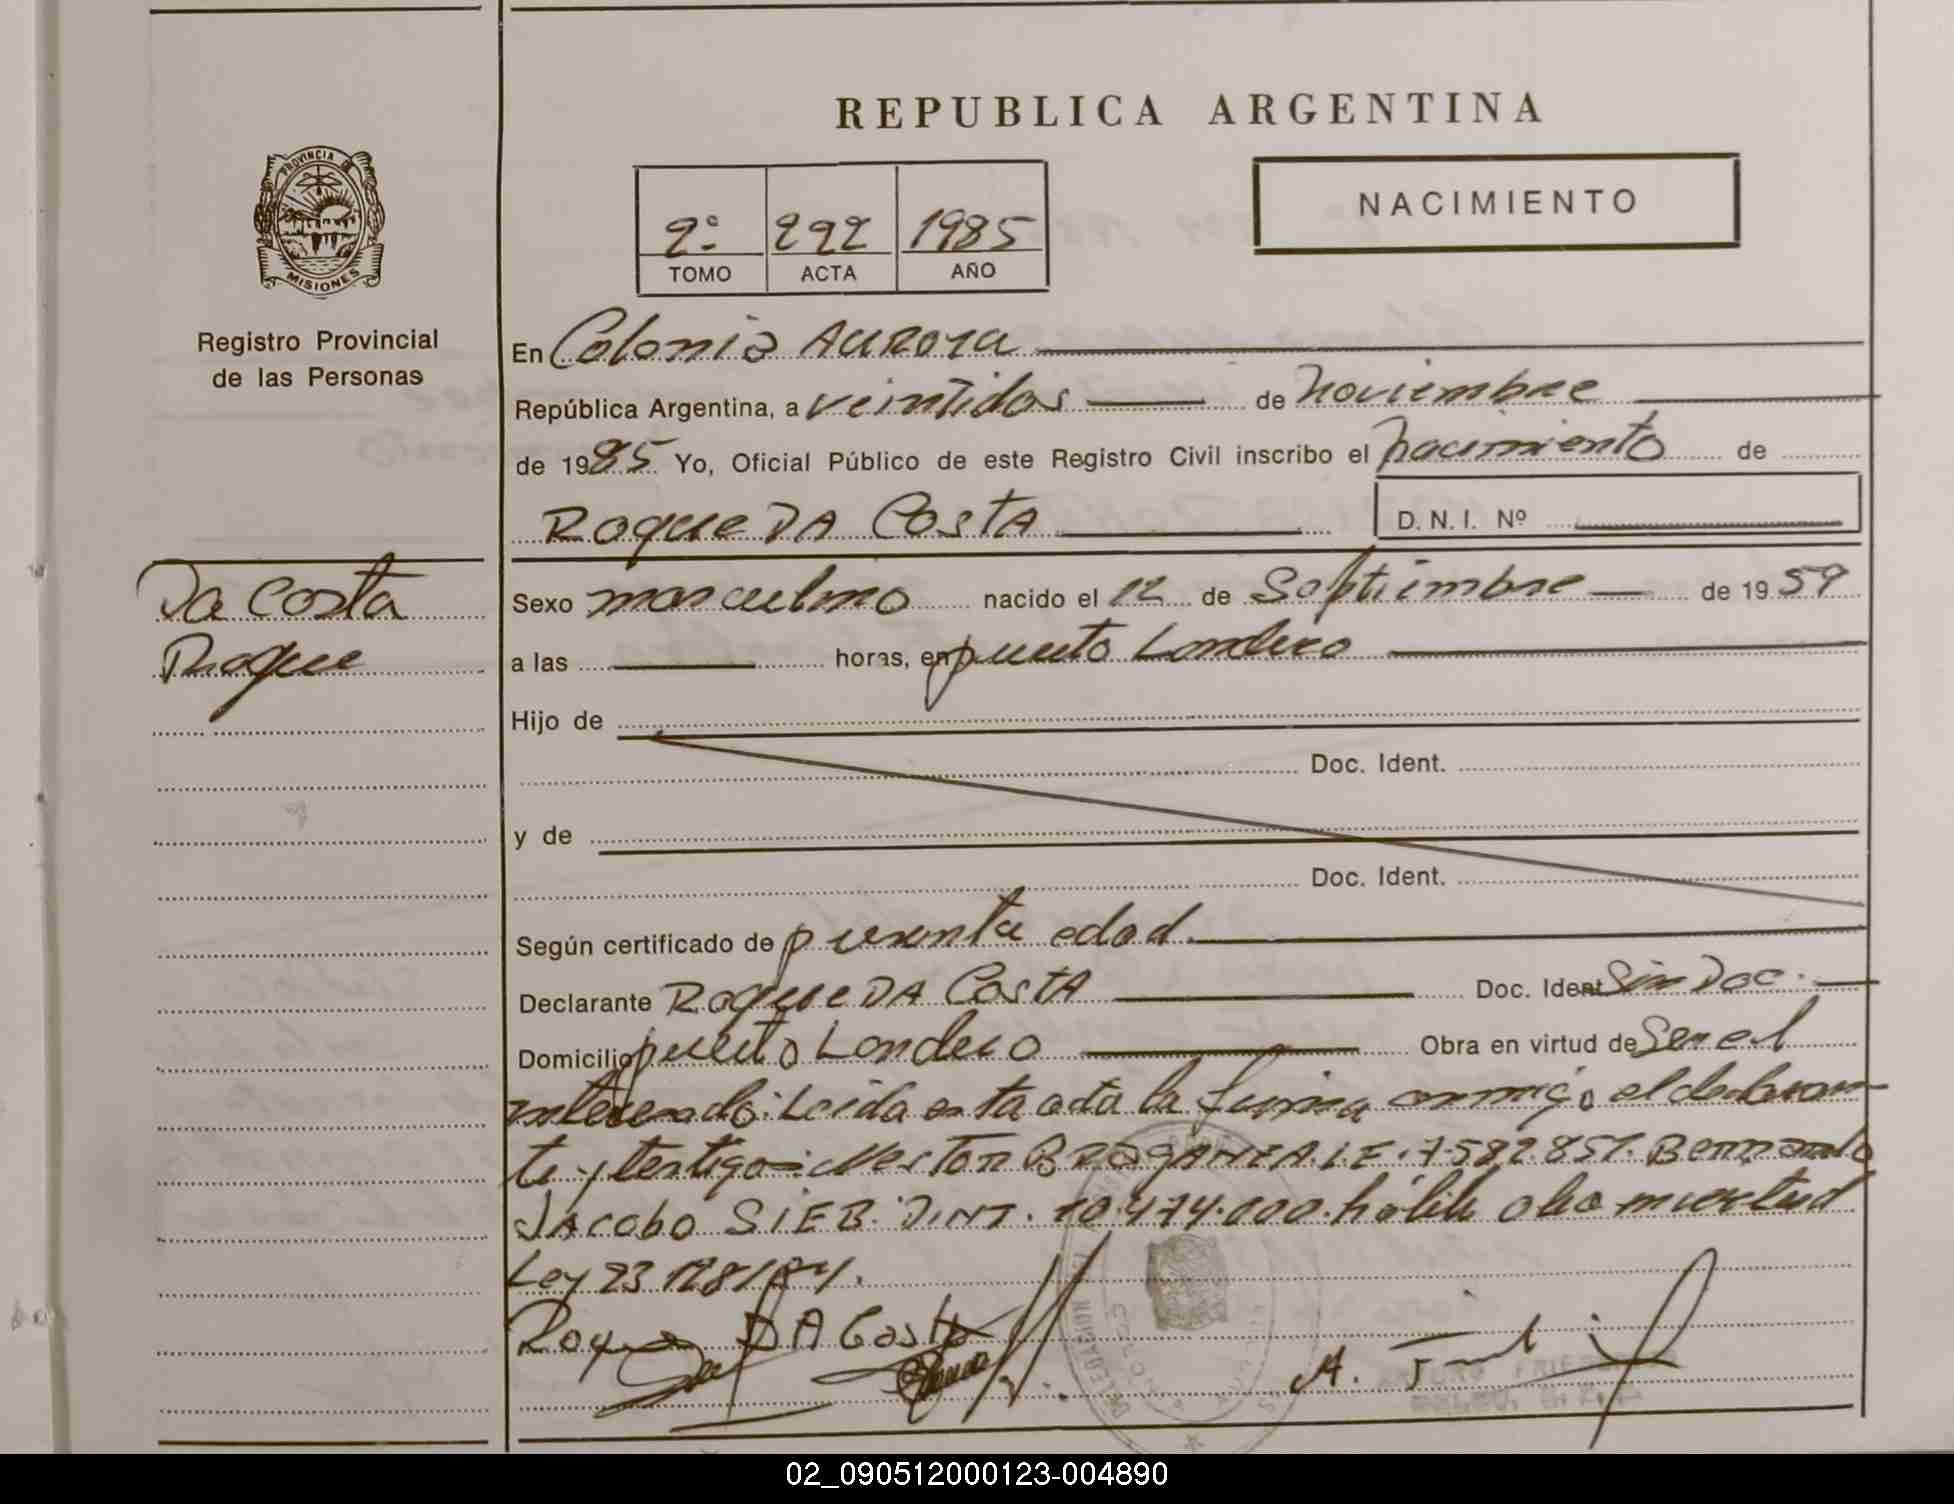 REPUBLICA ARGENTINA
PROVINCIA DE
MISIONES
Registro Provincial
de las Personas
2º 292 1985
TOMO ACTA AÑO
NACIMIENTO
En Colonia Aurora
República Argentina, a veintidos de noviembre
de 1985 Yo, Oficial Público de este Registro Civil inscribo el nacimiento de
Roque DA Costa D. N. I. Nº
Da Costa
Roque
Sexo masculino nacido el 12 de Septiembre de 1959
a las horas, en puerto Londero
Hijo de
Doc. Ident.
y de
Doc. Ident.
Según certificado de presunta edad.
Declarante Roque DA Costa Doc. Ident Sin Doc.
Domicilio puerto Londero Obra en virtud de Ser el
interesado. Leida esta acta la firma conmigo el declaran-
te y testigos: Nestor BRAGANZA. L.E. 7.582.857. Bernardo
JACOBO SIEB. D.N.I. 10.474.000. hábil obra en virtud
Ley 23128/84.
Roque DA Costa
02_090512000123-004890